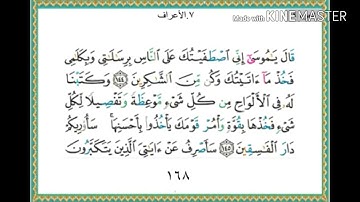 ٧.الأعراف
Made with KINEMASTER
قَالَ يَٰمُوسَىٰٓ إِنِّي ٱصۡطَفَيۡتُكَ عَلَى ٱلنَّاسِ بِرِسَٰلَٰتِي وَبِكَلَٰمِي
فَخُذۡ مَآ ءَاتَيۡتُكَ وَكُن مِّنَ ٱلشَّٰكِرِينَ ١٤٤ وَكَتَبۡنَا
لَهُۥ فِي ٱلۡأَلۡوَاحِ مِن كُلِّ شَيۡءٖ مَّوۡعِظَةٗ وَتَفۡصِيلٗا لِّكُلِّ
شَيۡءٖ فَخُذۡهَا بِقُوَّةٖ وَأۡمُرۡ قَوۡمَكَ يَأۡخُذُواْ بِأَحۡسَنِهَاۚ سَأُوْرِيكُمۡ
دَارَ ٱلۡفَٰسِقِينَ ١٤٥ سَأَصۡرِفُ عَنۡ ءَايَٰتِيَ ٱلَّذِينَ يَتَكَبَّرُونَ
١٦٨